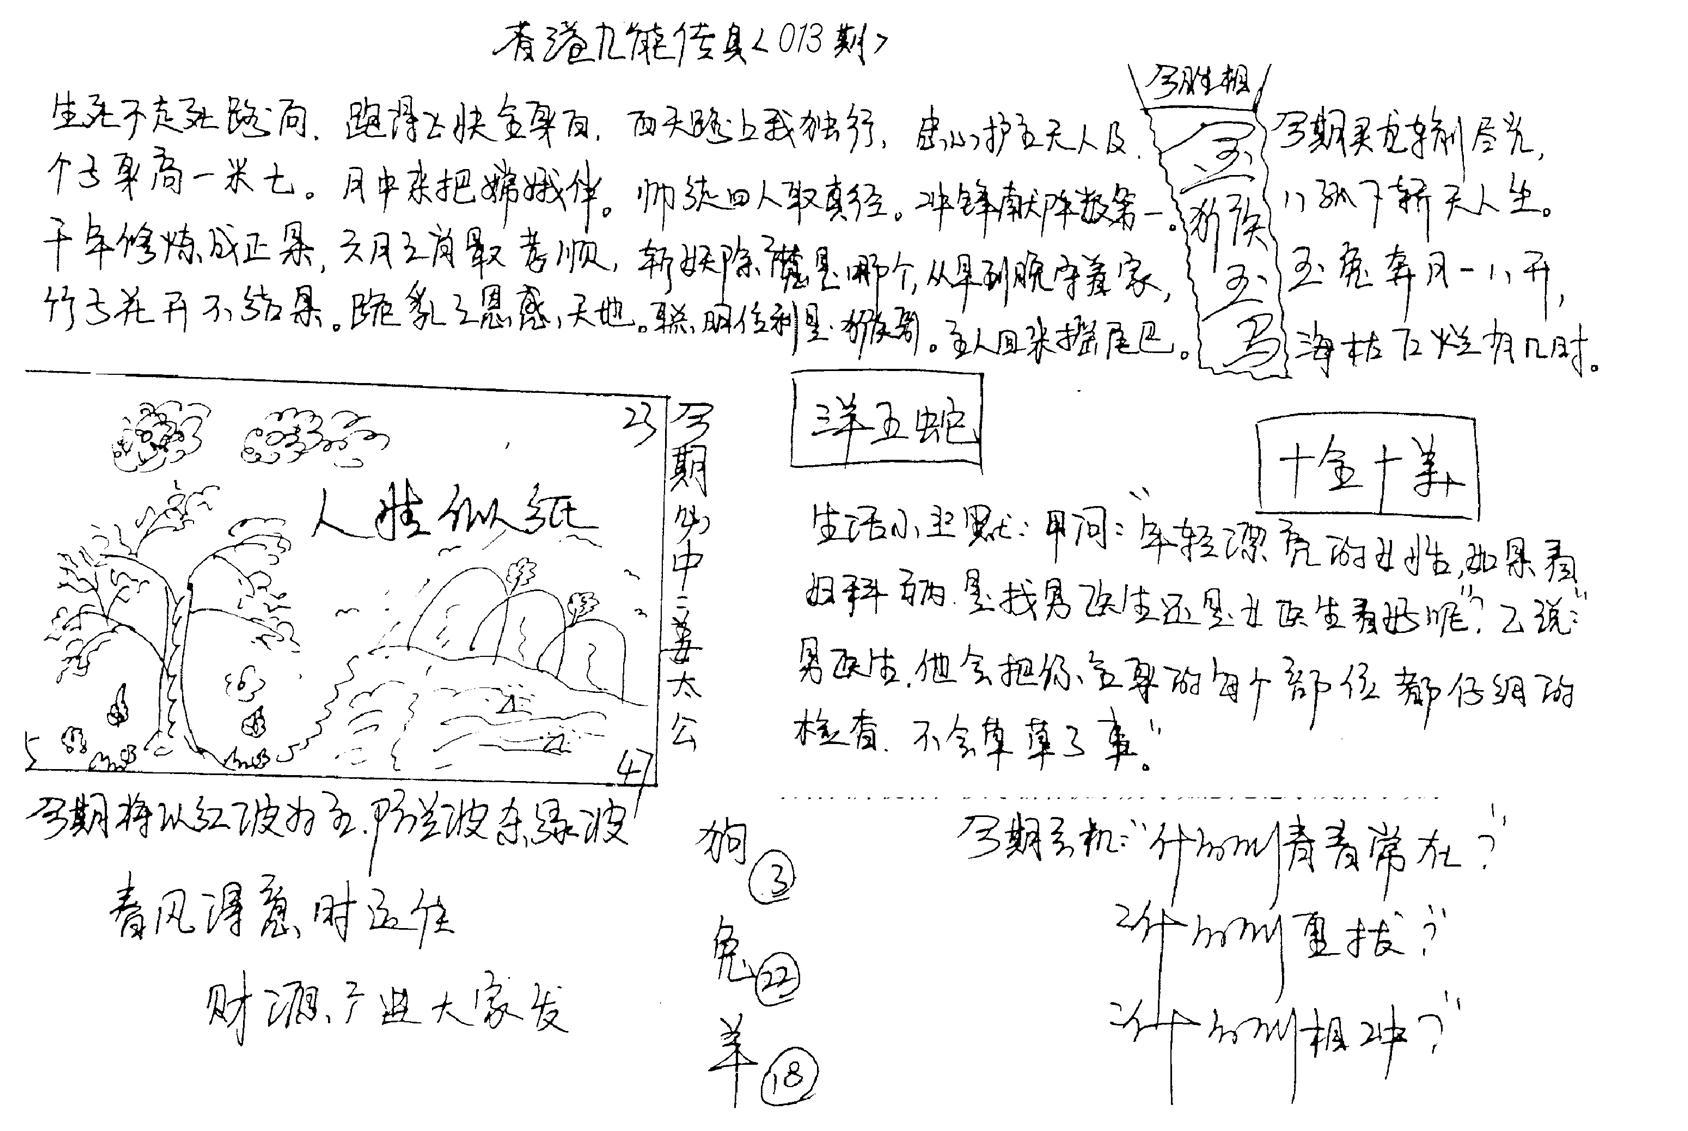 香港九龍传真<013期>
生死不走死路间.跑得飞快全身白.西天路上我独行,忠心护主天人及.
个子身高一米七。月中来把嫦娥伴。师徒四人取真经。冲锋献阵数第一。
千年修炼成正果,六月之首最孝顺,斩妖除魔是哪个,从早到晚守着家,
竹子花开不结果。跪乳之恩感天地。聪明伶利是猴哥。主人回来摇尾巴。
今胜相
金
玉
猴
玉
马
今期灵龙转削尽光,
八孤下轿天人生。
玉兔奔月一八开,
海枯石烂有几时。
23
人情似纸
5
47
今期必中:姜太公
洋五蛇
十全十美
生活小幽默:甲问:“年轻漂亮的女性,如果看
妇科病.是找男医生还是女医生看好呢”?乙说:“
男医生.他会把你全身的每个部位都仔细的
检查.不会草草了事”。
今期将以红波为主.防兰波东绿波
春风得意时运佳
财源产进大家发
狗③
兔㉒
羊⑱
今期玄机:“什么叫青春常在?”
什么叫重拔?”
什么叫相冲?”